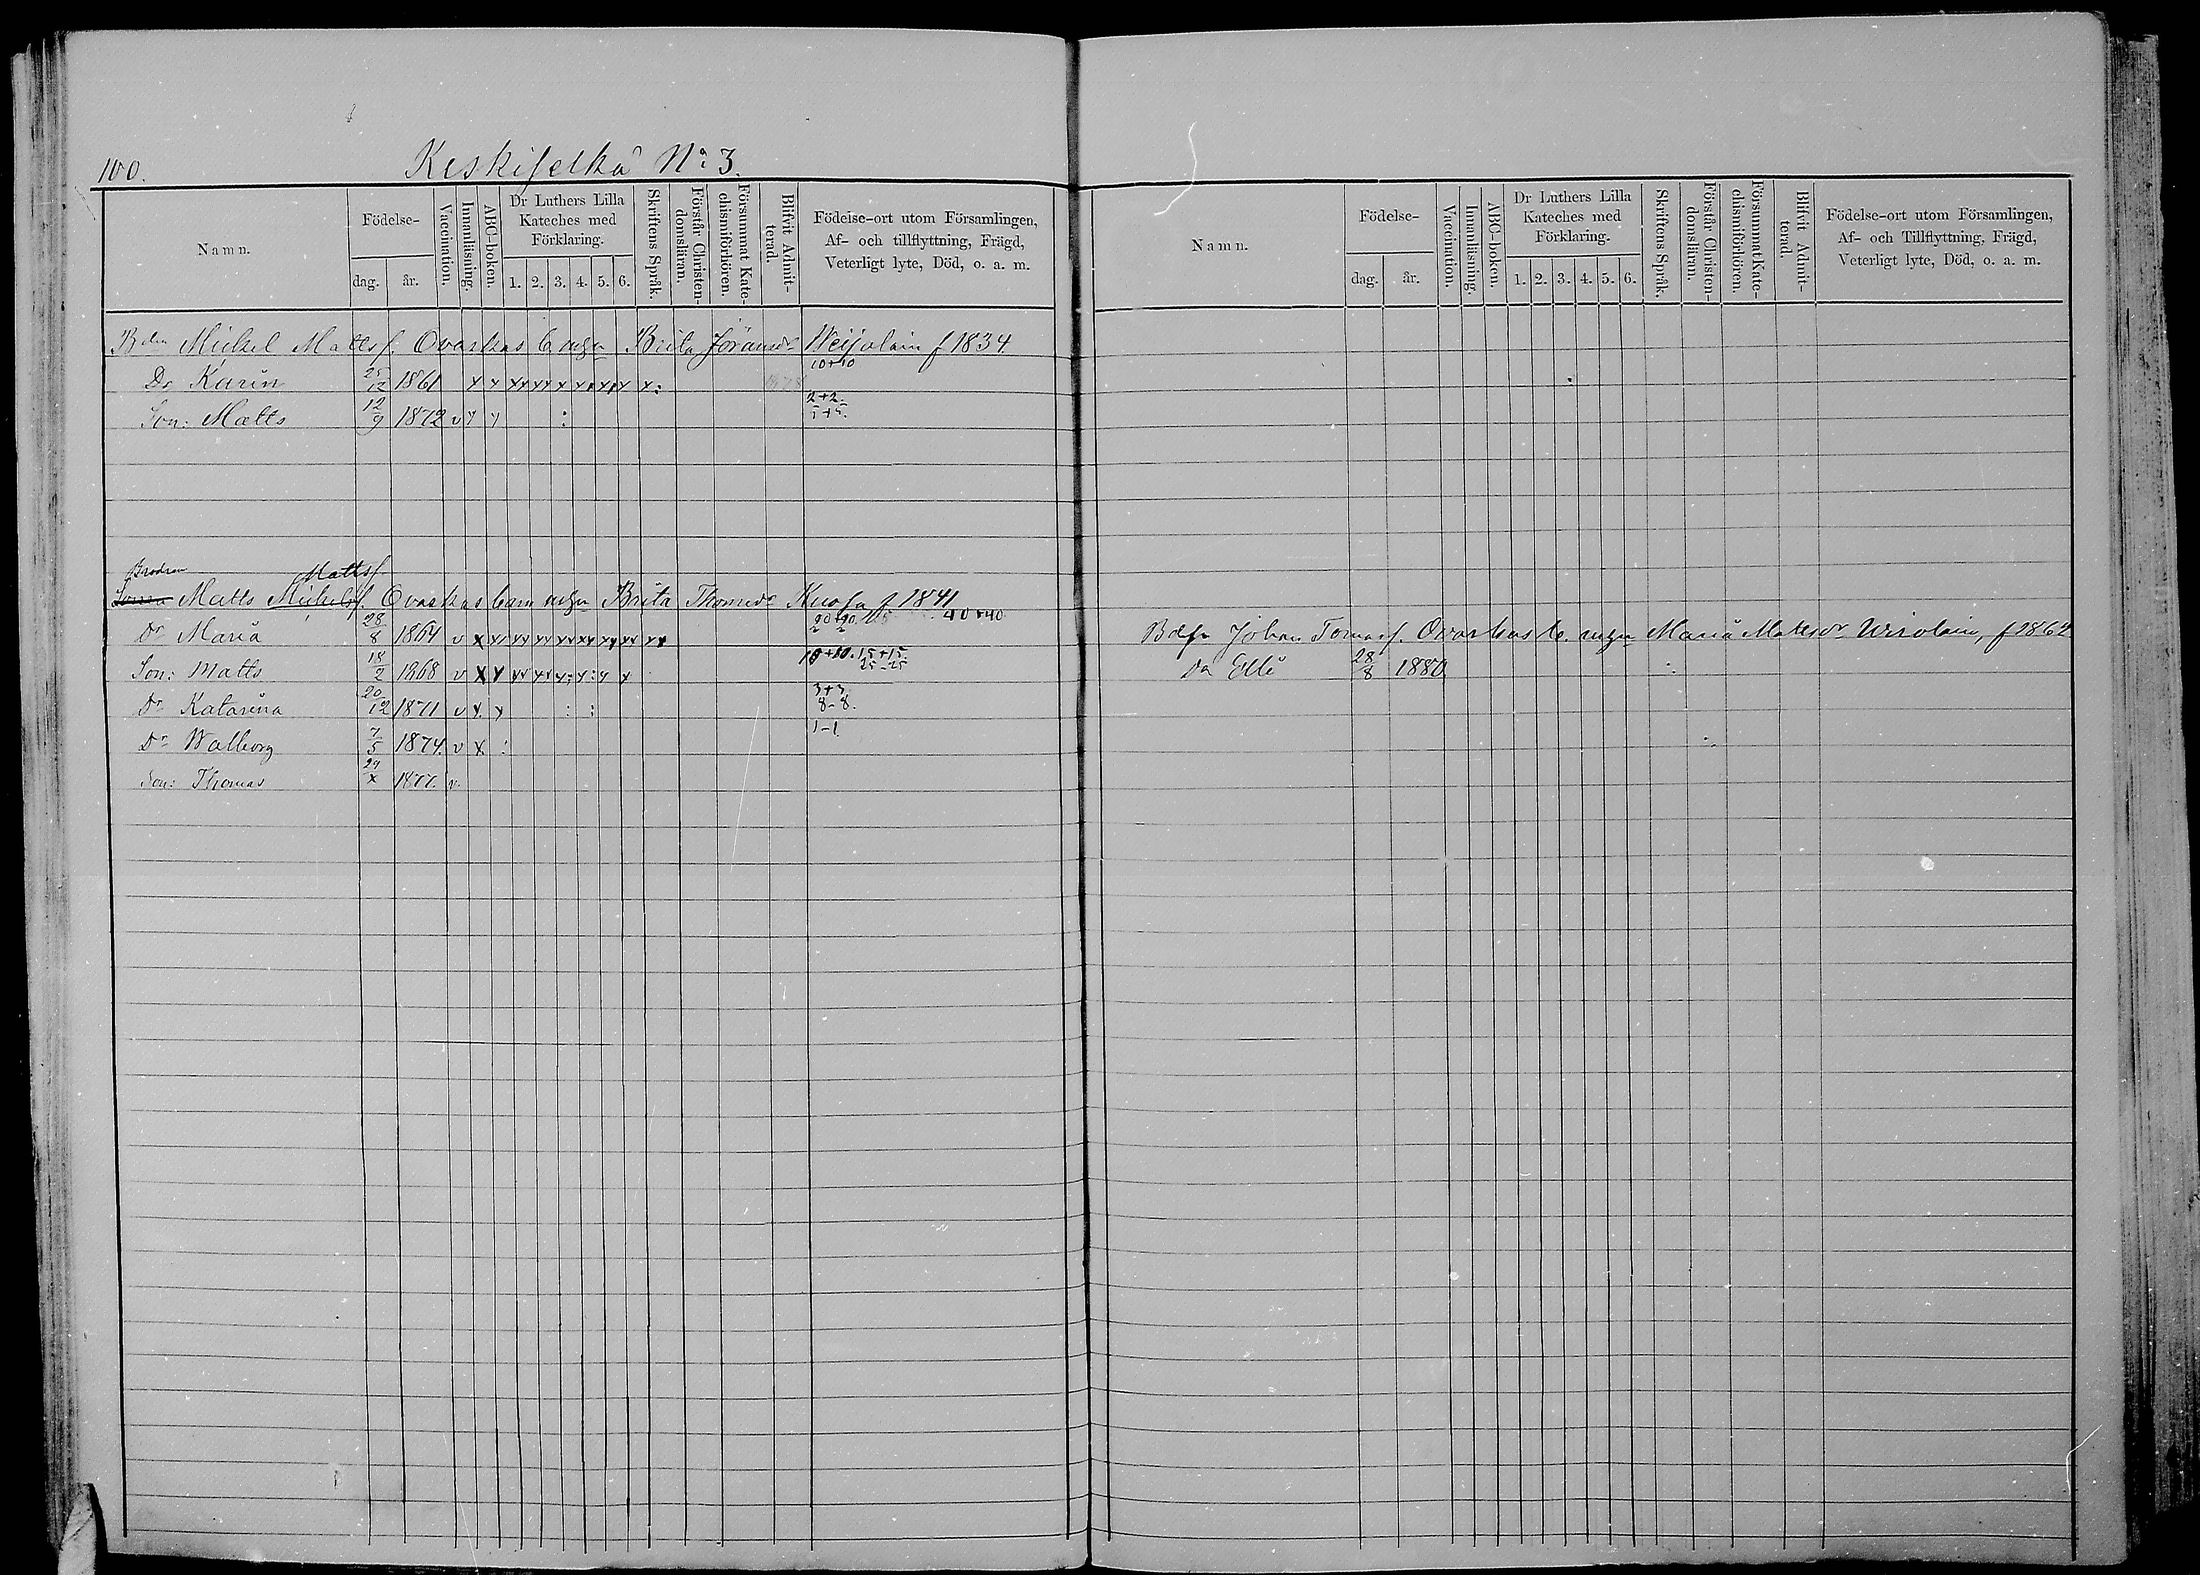 100. Keskiselkä No: 3.
Namn. Födelse- dag. år. Vaccination. Innanläsning. ABC-boken. Dr Luthers Lilla Kateches med Förklaring. 1. 2. 3. 4. 5. 6. Skriftens Språk. Förstår Christendomsläran. Försummat Katechismiförhören. Blifvit Admitterad. Födelse-ort utom Församlingen, Af- och tillflyttning, Frägd, Veterligt lyte, Död, o. a. m.
Bden Michel Mattss. Ovaskas b. mzn Brita Göransdr f 1834
10+10
Dr Karin 25/12 1861 x x xx xx x x x x x :
2+2.
Son: Matts 12/9 1872 v y y : 5+5.
Brodren Mattss.
Matts Michelss. Ovaskas barn mzn Brita Thomedr f. 1841
20+20 40+40
Dr Maria 28/8 1864 v x xx xx xx xx xx xx xx xx
10+10. 15+15.
25-25
Son: Matts 18/2 1868 v x y xx xx y: y: y x
3+3
Dr Katarina 20/12 1871 v y. y : : 8-8.
1-1
Dr Walborg 7/5 1874. v x :
Son: Thomas x 1877. v.
Namn. Födelse- dag. år. Vaccination. Innanläsning. ABC-boken. Dr Luthers Lilla Kateches med Förklaring. 1. 2. 3. 4. 5. 6. Skriftens Språk. Förstår Christendomsläran. Försummat Katechismiförhören. Blifvit Admitterad. Födelse-ort utom Församlingen, Af- och Tillflyttning, Frägd, Veterligt lyte, Död, o. a. m.
Johan Tomass. Ovaskas b. mzn Maria Matsdr Wirolain, f 1864
Dr Elli 28/8 1880